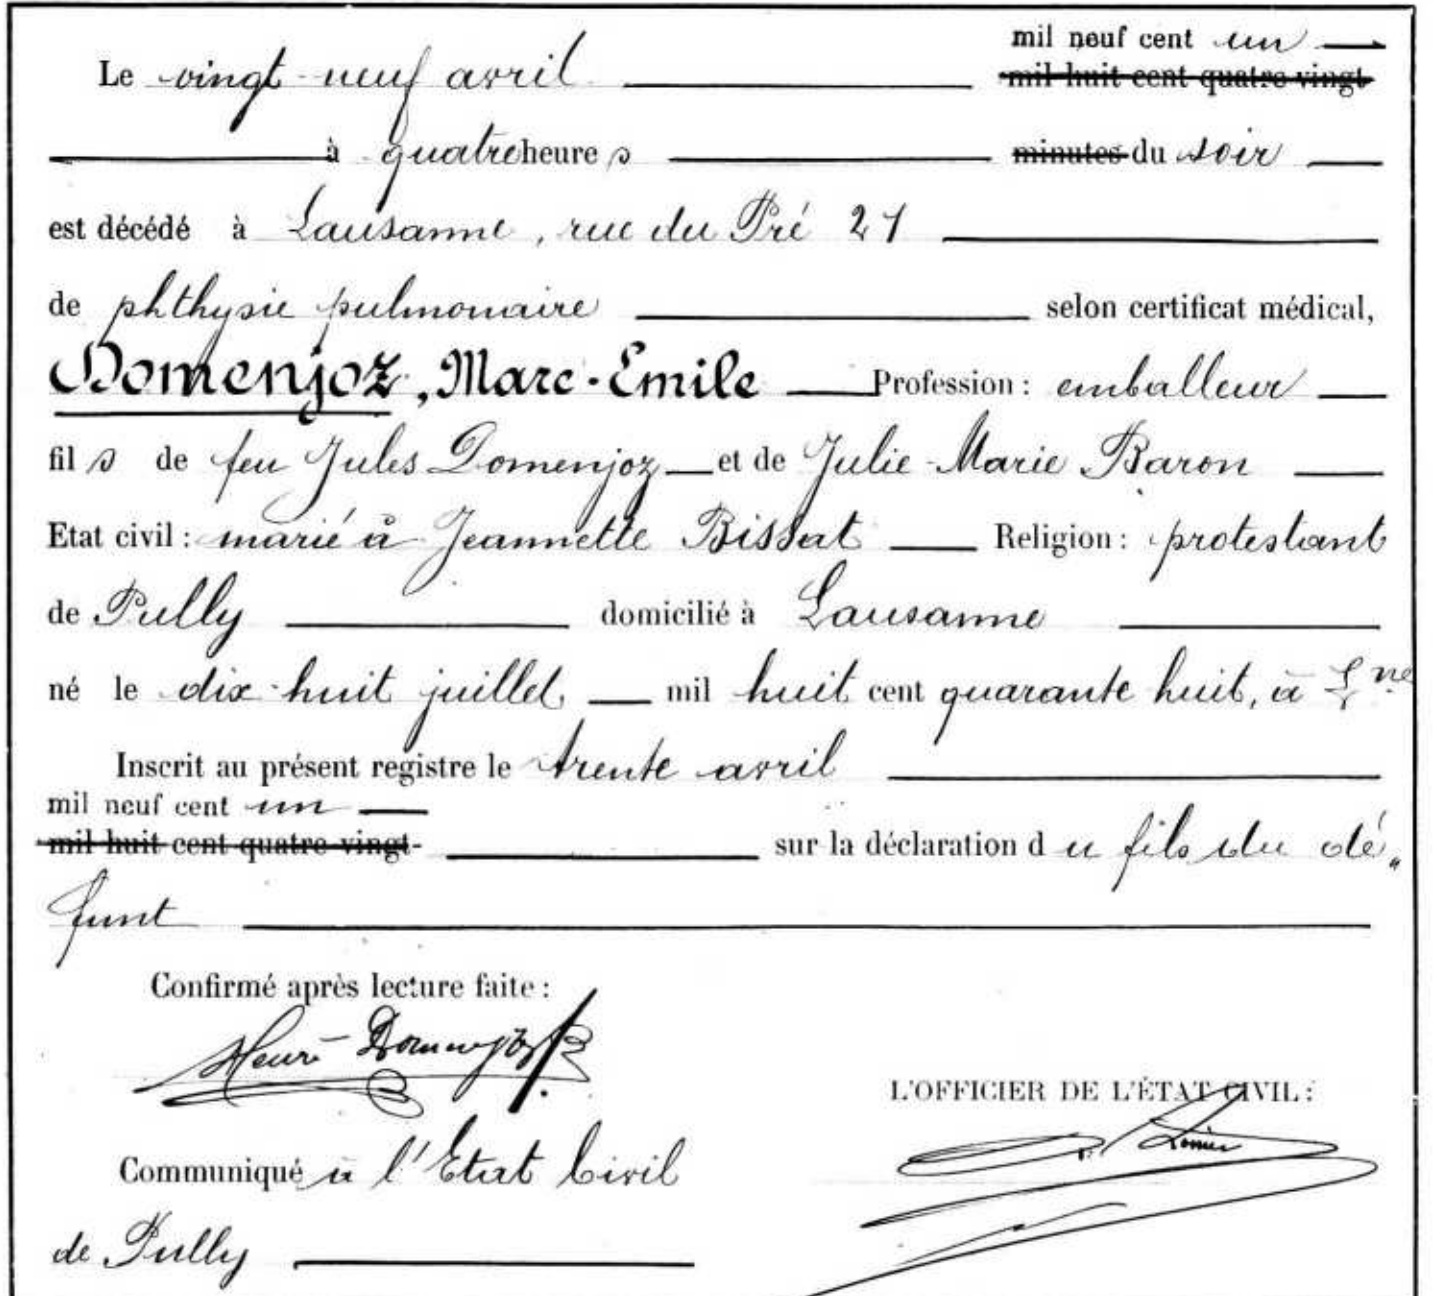 mil neuf cent un
Le vingt-neuf avril mil huit cent quatre vingt
à quatre heures minutes du soir
est décédé à Lausanne, rue du Pré 21
de phthysie pulmonaire selon certificat médical,
Domenjoz, Marc-Emile Profession: emballeur
fils de feu Jules Domenjoz et de Julie-Marie Baron
Etat civil: marié à Jeannette Bissat Religion: protestant
de Pully domicilié à Lausanne
né le dix-huit juillet mil huit cent quarante huit, à Lne
Inscrit au présent registre le trente avril
mil neuf cent un
mil huit cent quatre-vingt- sur la déclaration du fils du dé„
funt
Confirmé après lecture faite:
Henri Domenjoz
L'OFFICIER DE L'ÉTAT CIVIL:
Communiqué à l'Etat Civil
de Pully